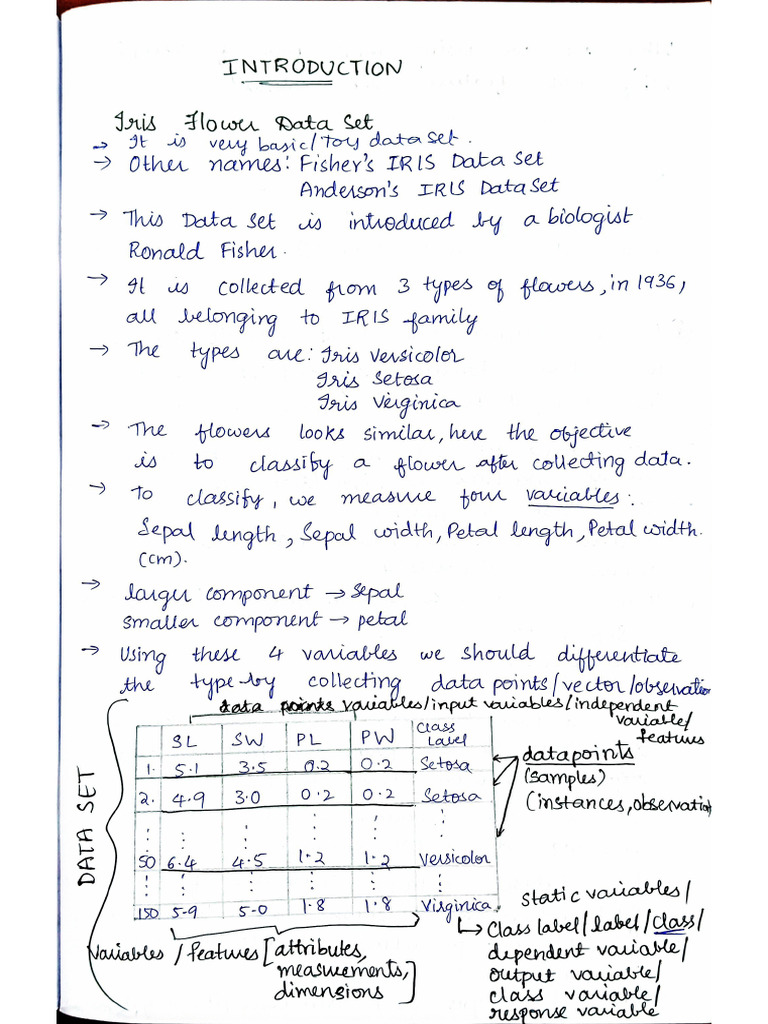 INTRODUCTION
Iris Flower Data Set
→ It is very basic/Toy data set.
→ Other names: Fisher's IRIS Data Set
Anderson's IRIS DataSet
→ This Data Set is introduced by a biologist
Ronald Fisher.
→ It is collected from 3 types of flowers, in 1936,
all belonging to IRIS family
→ The types are: Iris Versicolor
Iris Setosa
Iris Verginica
→ The flowers looks similar, here the objective
is to classify a flower after collecting data.
→ To classify, we measure four variables:
Sepal length, Sepal width, Petal length, Petal width.
(cm).
→ larger component → sepal
smaller component → petal
→ Using these 4 variables we should differentiate
the type by collecting data points/vector/observation
data points variables/input variables/independent
variable/
features
SL SW PL PW Class Label
1. 5.1 3.5 0.2 0.2 Setosa
2. 4.9 3.0 0.2 0.2 Setosa
50 6.4 4.5 1.2 1.2 Versicolor
150 5.9 5.0 1.8 1.8 Virginica
DATA SET
datapoints
(samples)
(instances, observation
Variables / features [attributes,
measurements,
dimensions]
static variables/
↳ Class label/label/class/
dependent variable/
output variable/
class variable/
response variable